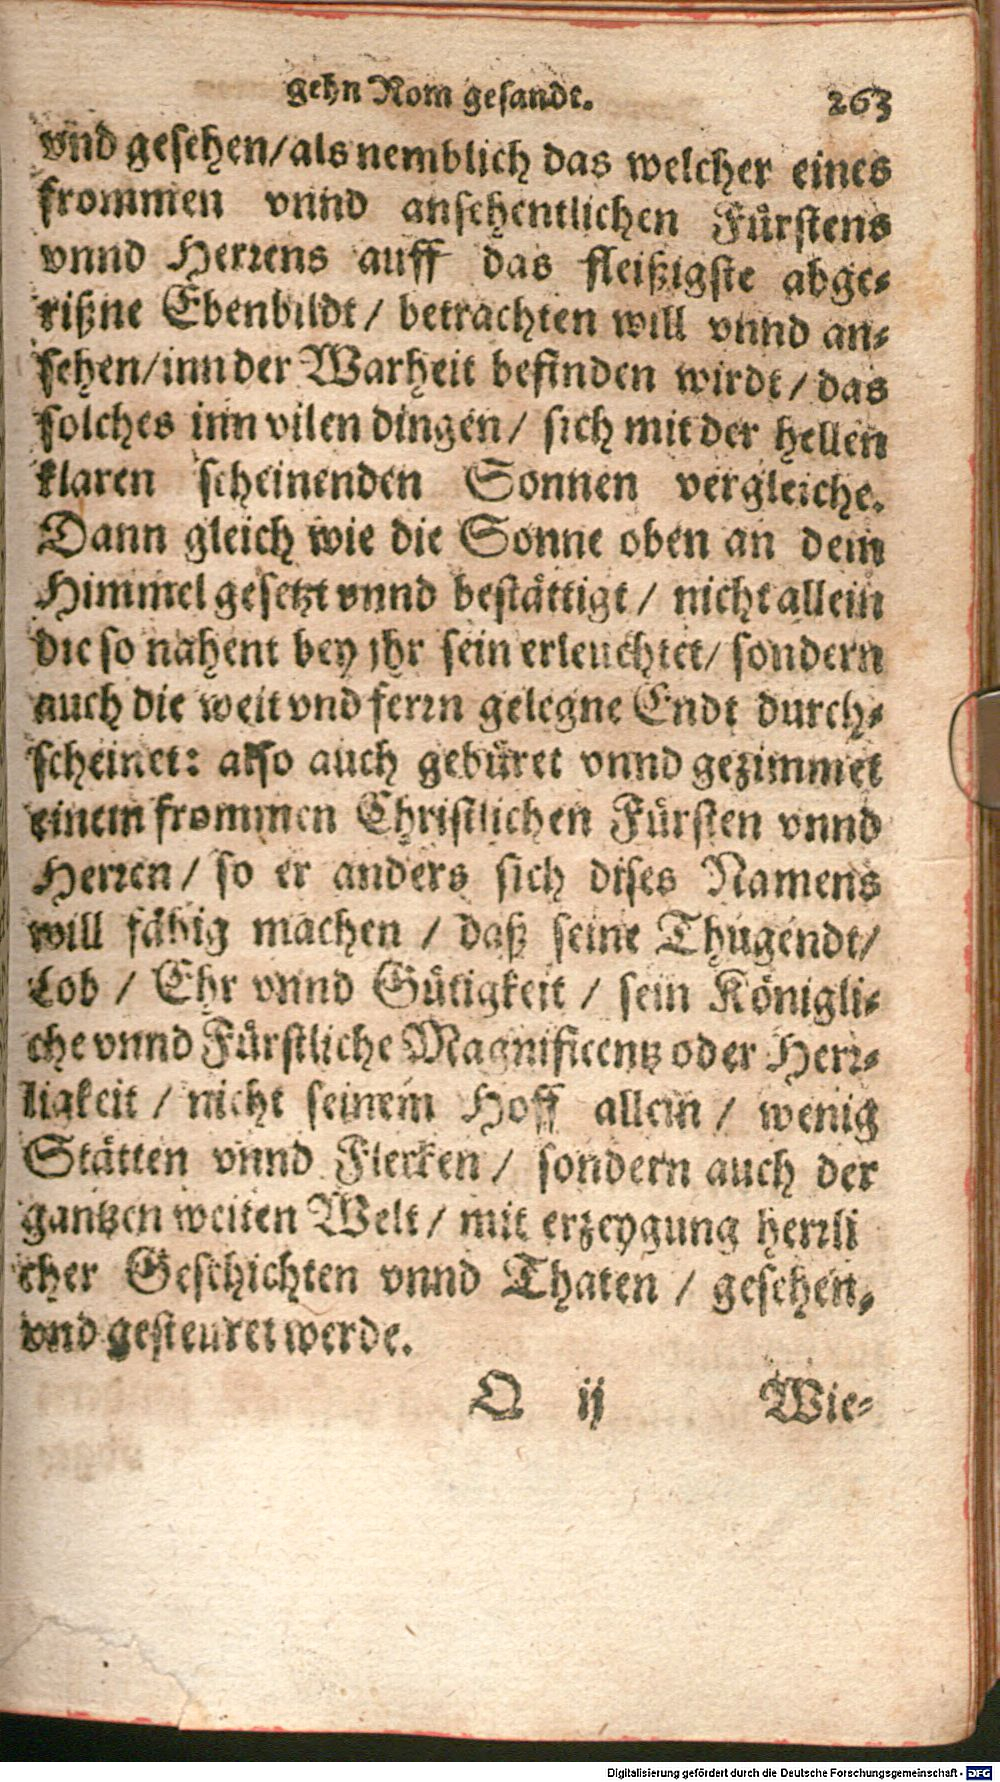 gehn Rom gesandt. 263
vnd gesehen/als nemblich das welcher eines
frommen vnnd ansehentlichen Fürstens
vnnd Herrens auff das fleißigste abge-
rißne Ebenbildt / betrachten will vnnd an-
sehen/inn der Warheit befinden wirdt / das
solches inn vilen dingen / sich mit der hellen
klaren scheinenden Sonnen vergleiche.
Dann gleich wie die Sonne oben an dem
Himmel gesetzt vnnd bestättigt / nicht allein
die so nahent bey jhr sein erleuchtet/ sondern
auch die weit vnd ferrn gelegne Endt durch-
scheinet: also auch gebüret vnnd gezimmet
einem frommen Christlichen Fürsten vnnd
Herren / so er anders sich dises Namens
will fähig machen / daß seine Thugendt/
Lob / Ehr vnnd Gütigkeit / sein Königli-
che vnnd Fürstliche Magnificentz oder Herr-
ligkeit / nicht seinem Hoff allein / wenig
Stätten vnnd Flecken / sondern auch der
gantzen weiten Welt / mit erzeygung herrli
cher Geschichten vnnd Thaten / gesehen,
vnd gesteuret werde.
Q ij Wie-
Digitalisierung gefördert durch die Deutsche Forschungsgemeinschaft - DFG